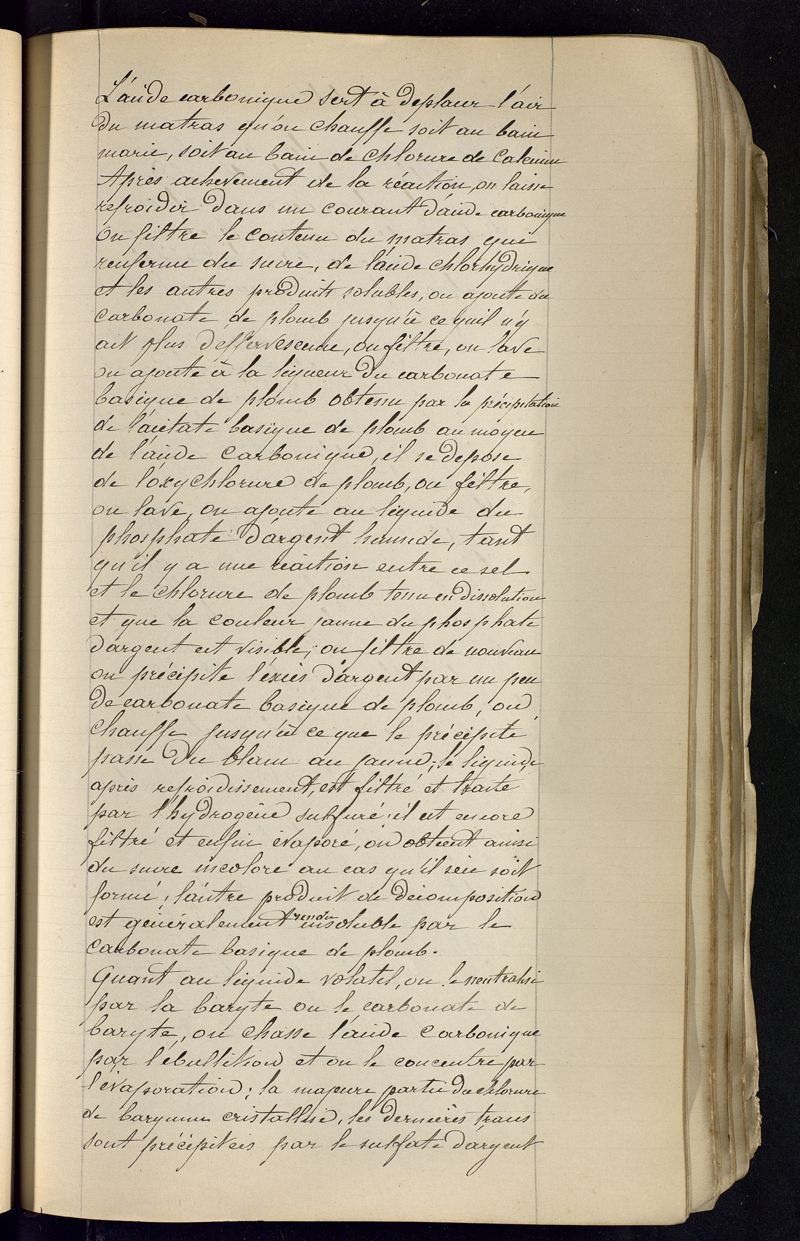 L'acide carbonique sert à deplacer l'air
du matras qu'on chauffe soit au bain
marie, soit au bain de chlorure de Calcium
Après achevement de la réaction, on laisse
refroidir dans un courant d'acide carbonique
On filtre le contenu du matras qui
renferme du sucre, de l'acide chlorhydrique
et les autres produits solubles, on ajoute du
carbonate de plomb jusqu'à ce qu'il n'y
ait plus d'effervescence, on filtre, on lave
on ajoute à la liqueur du carbonate
basique de plomb obtenu par la précipitation
de l'acétate basique de plomb au moyen
de l'acide Carbonique, il se depose
de l'oxychlorure de plomb, on filtre,
on lave, on ajoute au liquide du
phosphate d'argent humide, tant
qu'il y a une réaction entre ce sel
et le chlorure de plomb tenu en dissolution
et que la couleur jaune du phosphate
d'argent est visible; on filtre de nouveau
on précipite l'éxcès d'argent par un peu
de carbonate basique de plomb, on
chauffe jusqu'à ce que le précipité
passe du blanc au jaune; le liquide
après refroidissement, est filtré et traité
par l'hydrogène sulfuré; il est encore
filtré et enfin évaporé, on obtient ainsi
du sucre incolore au cas qu'il s'en soit
formé; l'autre produit de décomposition
est généralement rendu insoluble par le
carbonate basique de plomb.
Quant au liquide volatil, on le neutralise
par la baryte ou le carbonate de
baryte, on chasse l'acide Carbonique
par l'ébullition et on le concentre par
l'évaporation; la majeure partie du chlorure
de baryum cristallise, les dernières traces
sont précipitées par le sulfate d'argent